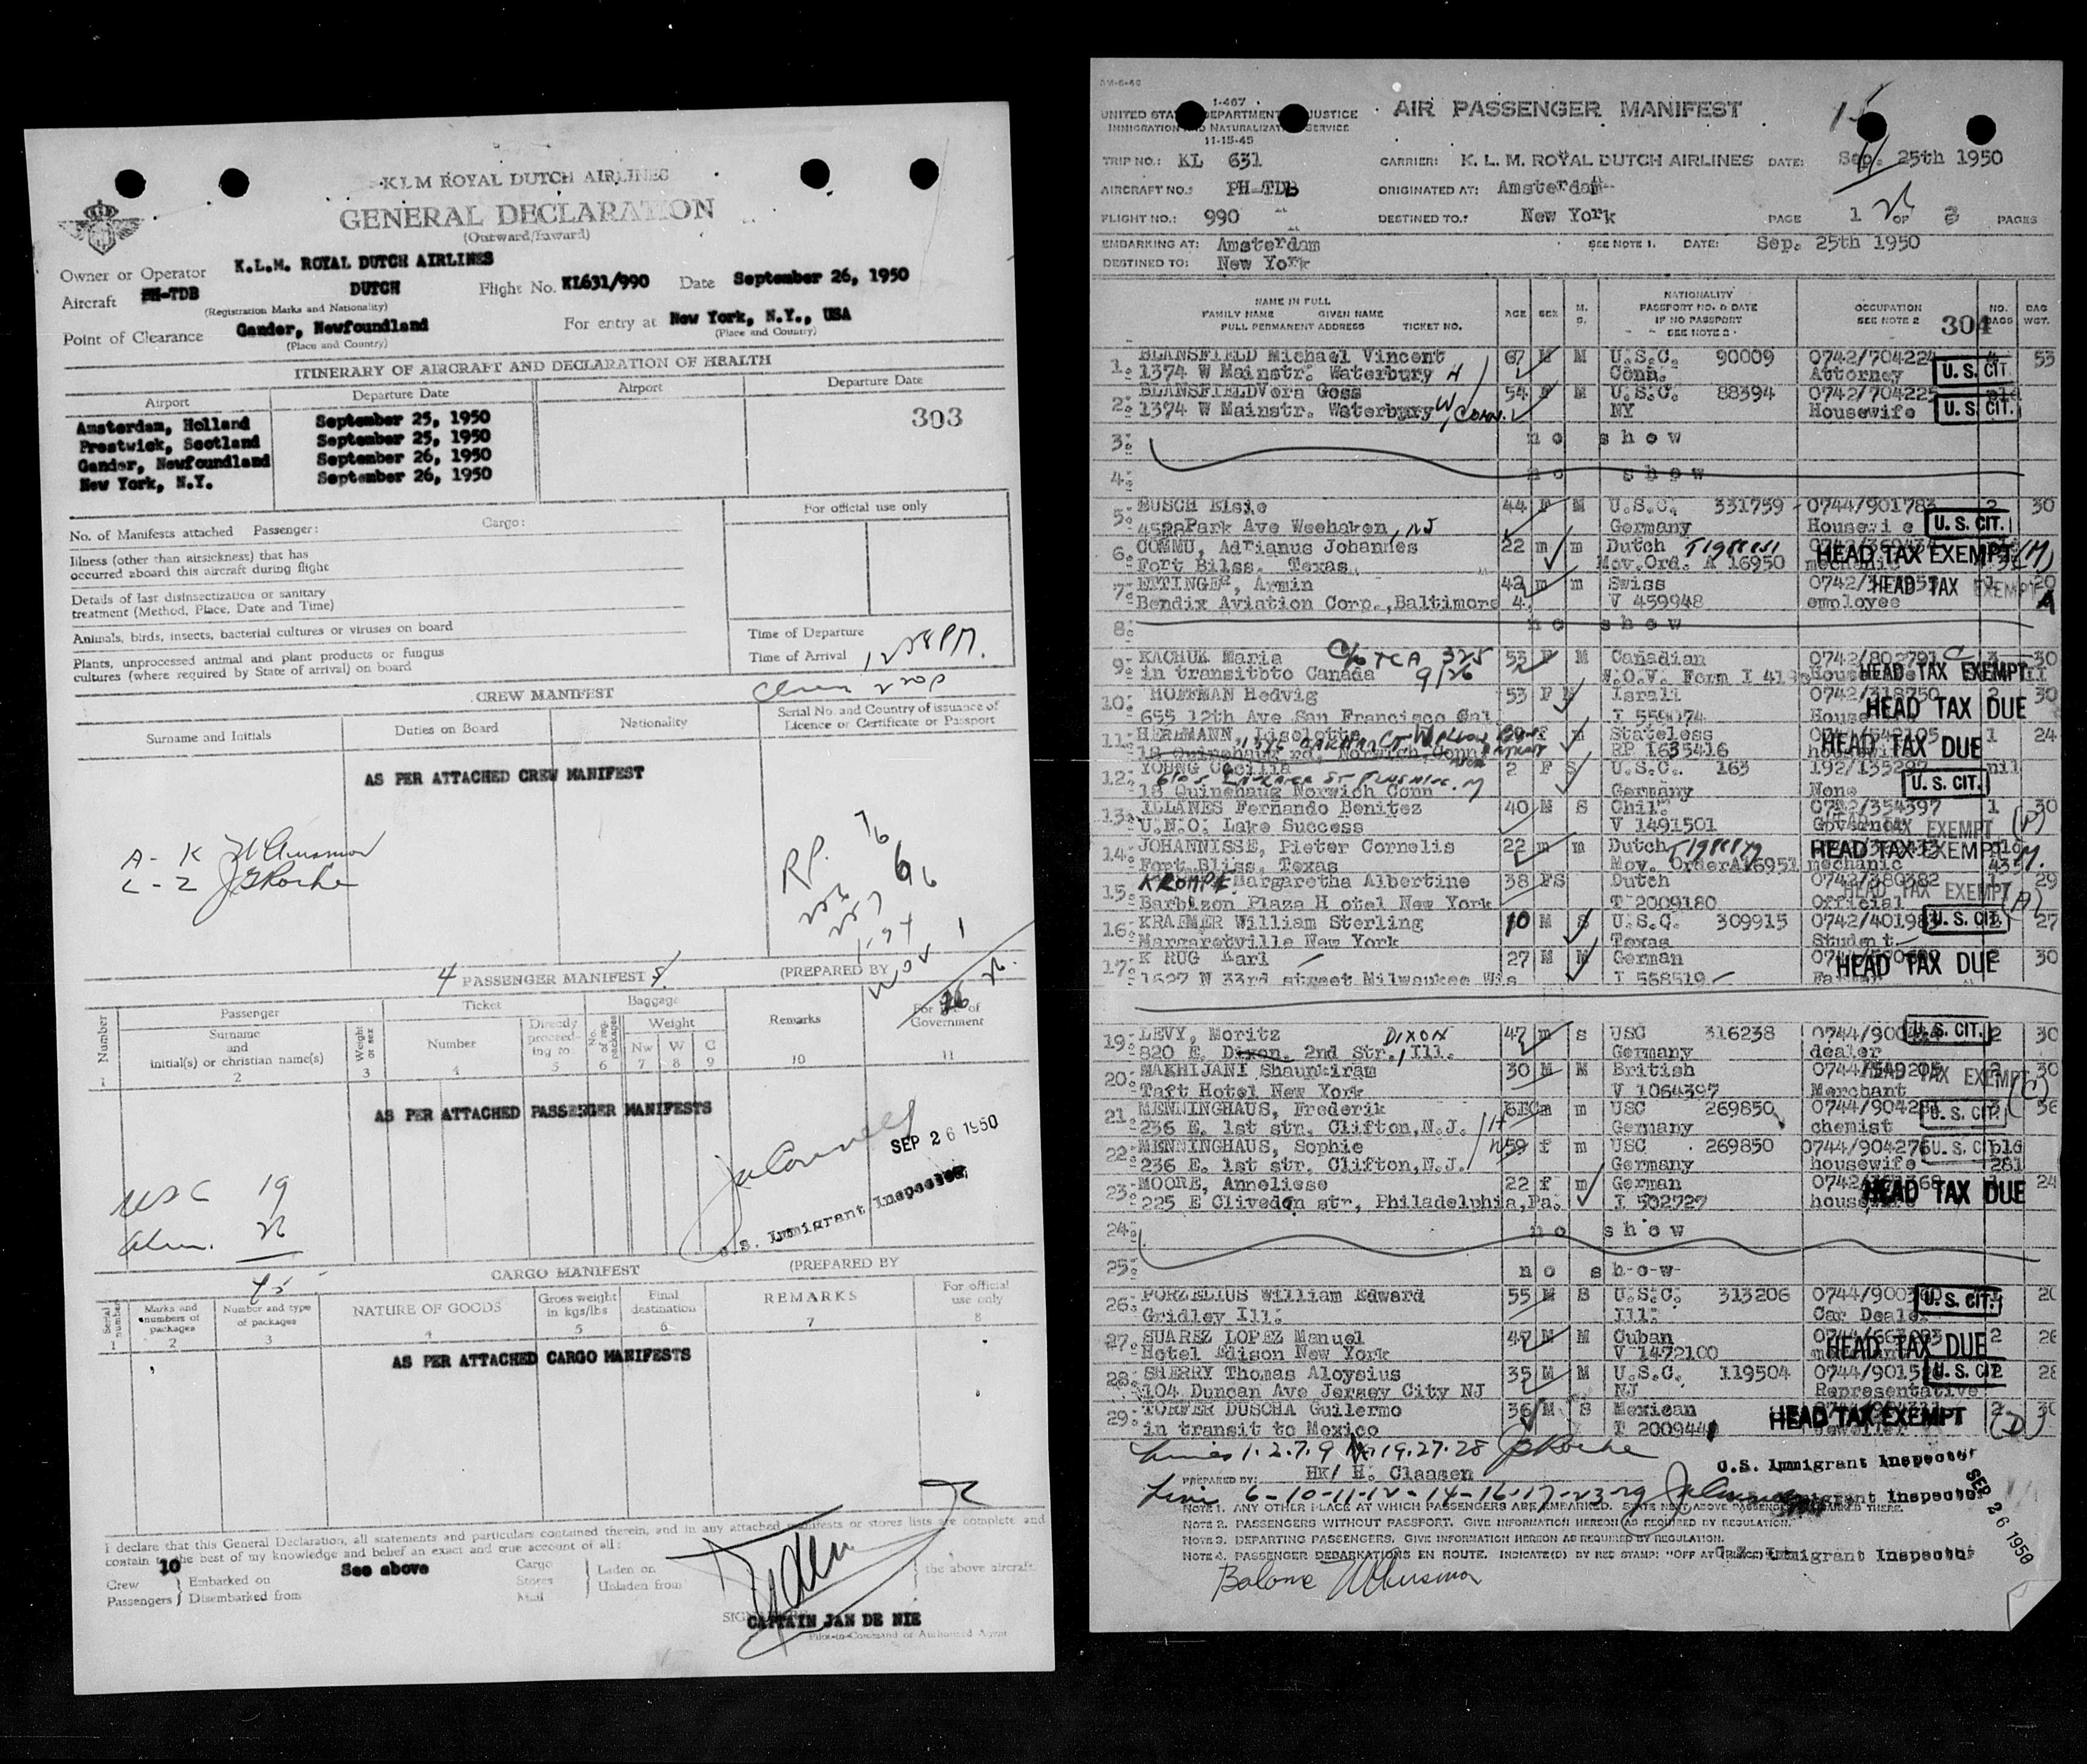 K.L.M ROYAL DUTCH AIRLINES
GENERAL DECLARATION
(Outward/Inward)
Owner or Operator K.L.M. ROYAL DUTCH AIRLINES
Aircraft PH-TDB DUTCH Flight No. KL631/990 Date September 26, 1950
(Registration Marks and Nationality)
Point of Clearance Gander, Newfoundland For entry at New York, N.Y., USA
(Place and Country) (Place and Country)
ITINERARY OF AIRCRAFT AND DECLARATION OF HEALTH
Airport Departure Date Airport Departure Date
Amsterdam, Holland September 25, 1950 303
Prestwick, Scotland September 25, 1950
Gander, Newfoundland September 26, 1950
New York, N.Y. September 26, 1950
No. of Manifests attached Passenger: Cargo: For official use only
Illness (other than airsickness) that has
occurred aboard this aircraft during flight
Details of last disinsectization or sanitary
treatment (Method, Place, Date and Time)
Animals, birds, insects, bacterial cultures or viruses on board Time of Departure
Plants, unprocessed animal and plant products or fungus Time of Arrival 1238PM.
cultures (where required by State of arrival) on board
CREW MANIFEST
Surname and Initials Duties on Board Nationality Serial No. and Country of issuance of
Licence or Certificate or Passport
AS PER ATTACHED CREW MANIFEST
A - K
L - Z JG Roche
4 PASSENGER MANIFEST (PREPARED BY
Number Passenger Ticket Baggage Remarks For use of
Government
Surname
and
initial(s) or christian name(s) Weight or sex Number Directly proceeding to No. of reg. packages Weight
Nw W C
1 2 3 4 5 6 7 8 9 10 11
AS PER ATTACHED PASSENGER MANIFESTS
SEP 26 1950
U.S. Immigrant Inspector
USC 19
26
45
CARGO MANIFEST (PREPARED BY
Serial number Marks and numbers of packages Number and type of packages NATURE OF GOODS Gross weight in kgs/lbs Final destination REMARKS For official use only
1 2 3 4 5 6 7 8
AS PER ATTACHED CARGO MANIFESTS
I declare that this General Declaration, all statements and particulars contained therein, and in any attached manifests or stores lists are complete and
contain to the best of my knowledge and belief an exact and true account of all:
Crew 10 Embarked on See above Cargo Laden on the above aircraft
Passengers Disembarked from Stores Unladen from
Mail
CAPTAIN JAN DE NIE
Pilot-in-Command or Authorized Agent
1-467
UNITED STATES DEPARTMENT OF JUSTICE AIR PASSENGER MANIFEST
IMMIGRATION AND NATURALIZATION SERVICE
11-15-45
TRIP NO.: KL 631 CARRIER: K. L. M. ROYAL DUTCH AIRLINES DATE: Sep. 25th 1950
AIRCRAFT NO.: PH-TDB ORIGINATED AT: Amsterdam
FLIGHT NO.: 990 DESTINED TO.: New York PAGE 1 OF 3 PAGES
EMBARKING AT: Amsterdam SEE NOTE 1. DATE: Sep. 25th 1950
DESTINED TO: New York
NAME IN FULL
FAMILY NAME GIVEN NAME
FULL PERMANENT ADDRESS TICKET NO. AGE SEX M. S. NATIONALITY
PASSPORT NO. & DATE
IF NO PASSPORT
SEE NOTE 2. OCCUPATION
SEE NOTE 2 304 NO. BAGS BAG WGT.
1. BLANSFIELD Michael Vincent 67 M M U.S.C. 90009 0742/704224 4 53
1374 W Mainstr. Waterbury H Conn. Attorney U.S. CIT.
2. BLANSFIELD Vera Goss 54 F M U.S.C. 88394 0742/704225
1374 W Mainstr. Waterbury W, Conn. NY Housewife U.S. CIT.
3. no show
4. no show
5. BUSCH Elsie 44 F M U.S.C. 331759 0744/901783 2 30
4528 Park Ave Weehaken, NJ Germany U.S. CIT.
6. COMMU, Adrianus Johannes 22 m m Dutch
Fort Bliss. Texas Mov.Ord. A 16950 mechanic HEAD TAX EXEMPT (M)
7. ETTINGER, Armin 42 m m Swiss HEAD TAX EXEMPT 20
Bendix Aviation Corp.,Baltimore 4. V 459948 employee A
8. no show
9. KACHUK Maria C/o TCA 325 53 F M Canadian 0742/802791 3 30
in transitbto Canada 9/26 W.O.V. Form I HEAD TAX EXEMPT
10. HOFFMAN Hedvig 53 F M Israli 0742/318750 2 30
655 12th Ave San Francisco Cal I 559074 HEAD TAX DUE
11. HERLMANN, Liselotte f m Stateless 1 24
18 Quinehaug rd, Norwich,Conn RP 1635416 HEAD TAX DUE
12. YOUNG Cecilia 2 F S U.S.C. 163 192/135297 nil
18 Quinehaug Norwich Conn Germany None U.S. CIT.
13. ILLANES Fernando Benitez 40 M S Chil. 0742/354397 1 30
U.N.O. Lake Success V 1491501 Governor HEAD TAX EXEMPT
14. JOHANNISSE, Pieter Cornelis 22 m m Dutch
Fort Bliss, Texas Mov. OrderA16951 mechanic HEAD TAX EXEMPT
15. KROMPE Margaretha Albertine 38 F S Dutch 0742/380382 1 29
Barbizon Plaza H otel New York T 2009180 Official HEAD TAX EXEMPT (A)
16. KRAEMER William Sterling 10 M S U.S.C. 309915 U.S. CIT. 27
Margaretville New York Texas Student
17. K RUG Karl 27 M M German 2 30
1627 W 33rd street Milwaukee Wis I 568519 HEAD TAX DUE
19. LEVY, Moritz DIXON 47 m s USC 316238 U.S. CIT. 2 30
820 E. Dixon. 2nd Str., Ill. Germany dealer
20. MAKHIJANI Shaunkiram 30 M M British 2 30
Taft Hotel New York V 1064397 Merchant HEAD TAX EXEMPT (C)
21. MENNINGHAUS, Frederik m m USC 269850 3 36
236 E. 1st str. Clifton,N.J. H Germany chemist U.S. CIT.
22. MENNINGHAUS, Sophie W 59 f m USC 269850 0744/904276 U.S. CIT.
236 E. 1st str, Clifton,N.J. Germany housewife 281
23. MOORE, Anneliese 22 f m German 24
225 E Cliveden str, Philadelphia,Pa. I 502727 housewife HEAD TAX DUE
24. no show
25. no show
26. PORZELIUS William Edward 55 M S U.S.C. 313206 U.S. CIT.
Gridley Ill. Ill. Car Dealer
27. SUAREZ LOPEZ Manuel 47 M M Cuban 2
Hotel Edison New York V 1472100 HEAD TAX DUE
28. SHERRY Thomas Aloysius 35 M M U.S.C. 119504 U.S. CIT.
104 Duncan Ave Jersey City NJ NJ Representative
29. TORNER DUSCHA Guilermo 36 M S Mexican HEAD TAX EXEMPT 2 (D)
in transit to Mexico Jeweller
1.2.7.9 19.27.28 JG Roche
U.S. Immigrant Inspector
PREPARED BY: HK/ H. Claasen
Line 6-10-11-12-14-16-17-23-29 Immigrant Inspector
NOTE 1. ANY OTHER PLACE AT WHICH PASSENGERS ARE EMBARKED.
NOTE 2. PASSENGERS WITHOUT PASSPORT. GIVE INFORMATION HEREON AS REQUIRED BY REGULATION.
NOTE 3. DEPARTING PASSENGERS. GIVE INFORMATION HEREON AS REQUIRED BY REGULATION.
NOTE 4. PASSENGER DEBARKATIONS EN ROUTE. INDICATE(D) BY RED STAMP: "OFF AT
U.S. Immigrant Inspector
SEP 26 1950
Balance